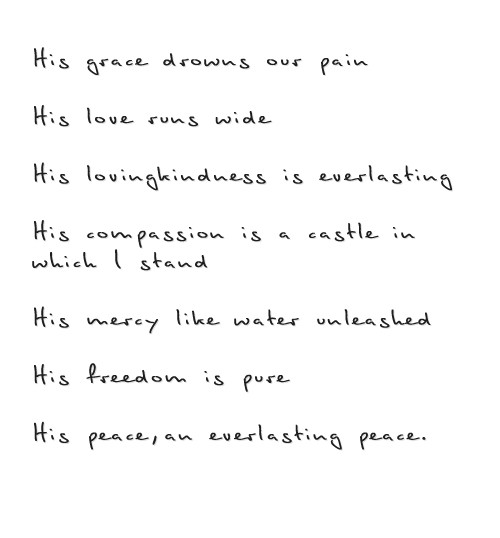 His grace drowns our pain
His love runs wide
His lovingkindness is everlasting
His compassion is a castle in
which I stand
His mercy like water unleashed
His freedom is pure
His peace, an everlasting peace.